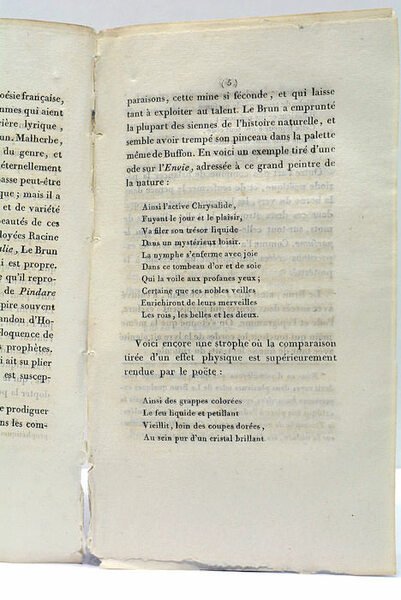 oésie française,
mmes qui aient
rière lyrique,
un. Malherbe,
du genre, et
éternellement
asse peut-être
que ; mais il a
et de variété
eautés de ces
loyées Racine
alie, Le Brun
i est propre.
qu'il repro-
de Pindare
pire souvent
andon d'Ho-
loquence de
s prophètes.
i ait su plier
est suscep-
e prodiguer
ns les com-
(5)
paraisons, cette mine si féconde, et qui laisse
tant à exploiter au talent. Le Brun a emprunté
la plupart des siennes de l'histoire naturelle, et
semble avoir trempé son pinceau dans la palette
même de Buffon. En voici un exemple tiré d'une
ode sur l'Envie, adressée à ce grand peintre de
la nature :
Ainsi l'active Chrysalide,
Fuyant le jour et le plaisir,
Va filer son trésor liquide
Dans un mystérieux loisir.
La nymphe s'enferme avec joie
Dans ce tombeau d'or et de soie
Qui la voile aux profanes yeux ;
Certaine que ses nobles veilles
Enrichiront de leurs merveilles
Les rois, les belles et les dieux.
Voici encore une strophe où la comparaison
tirée d'un effet physique est supérieurement
rendue par le poète :
Ainsi des grappes colorées
Le feu liquide et petillant
Vieillit, loin des coupes dorées,
Au sein pur d'un cristal brillant